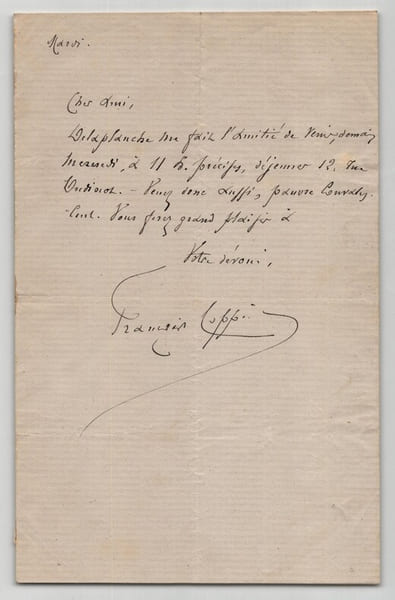 Mardi.
Cher Ami,
Delaplanche me fait l'amitié de venir, demain
mercredi, à 11 h. précises, déjeuner 12. rue
Oudinot. — Venez donc aussi, pauvre convales-
cent. Vous ferez grand plaisir à
Votre dévoué,
François Coppée